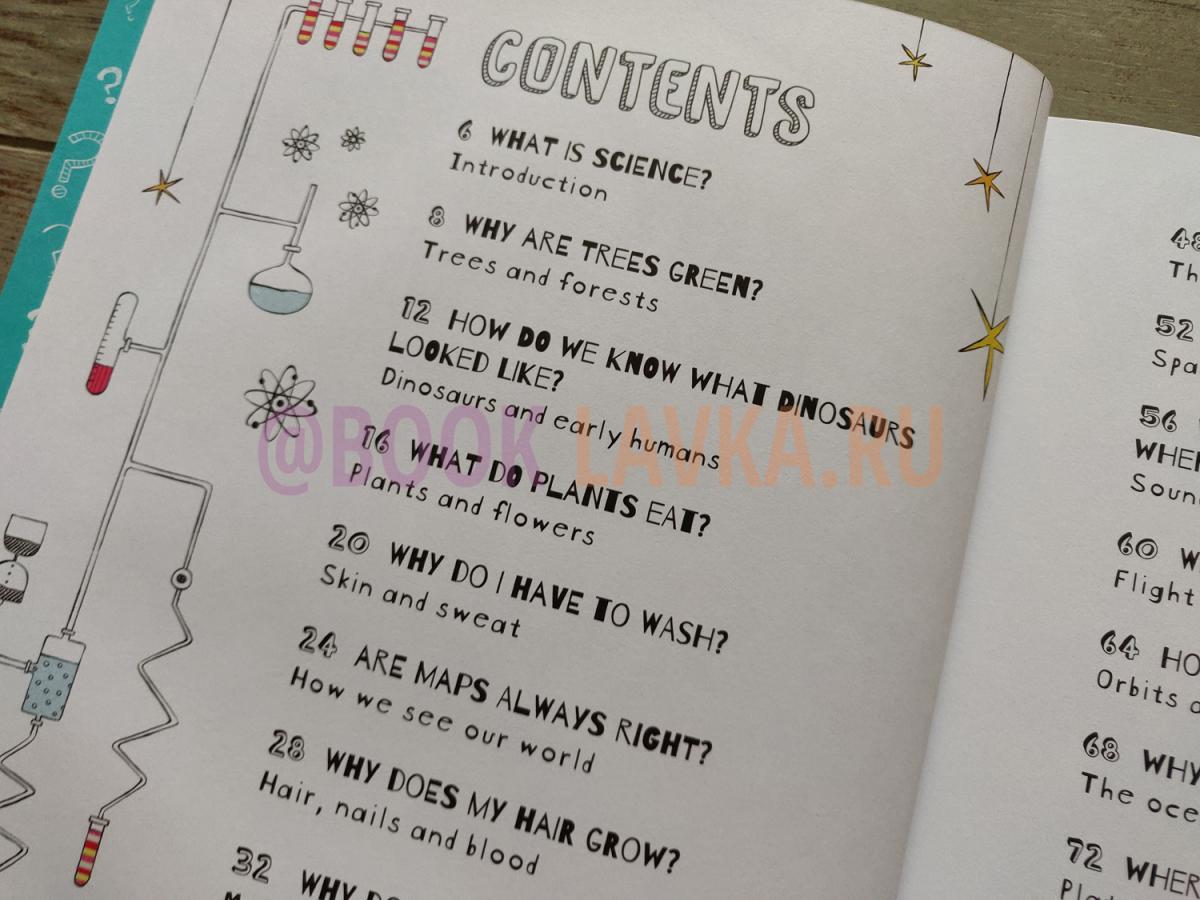 CONTENTS
6 WHAT IS SCIENCE?
Introduction
8 WHY ARE TREES GREEN?
Trees and forests
12 HOW DO WE KNOW WHAT DINOSAURS
LOOKED LIKE?
Dinosaurs and early humans
16 WHAT DO PLANTS EAT?
Plants and flowers
20 WHY DO I HAVE TO WASH?
Skin and sweat
24 ARE MAPS ALWAYS RIGHT?
How we see our world
28 WHY DOES MY HAIR GROW?
Hair, nails and blood
32 WHY
@BOOK LAVKA.RU
48
52
56
60
Flight
64
Orbits
68 WHY
The
72